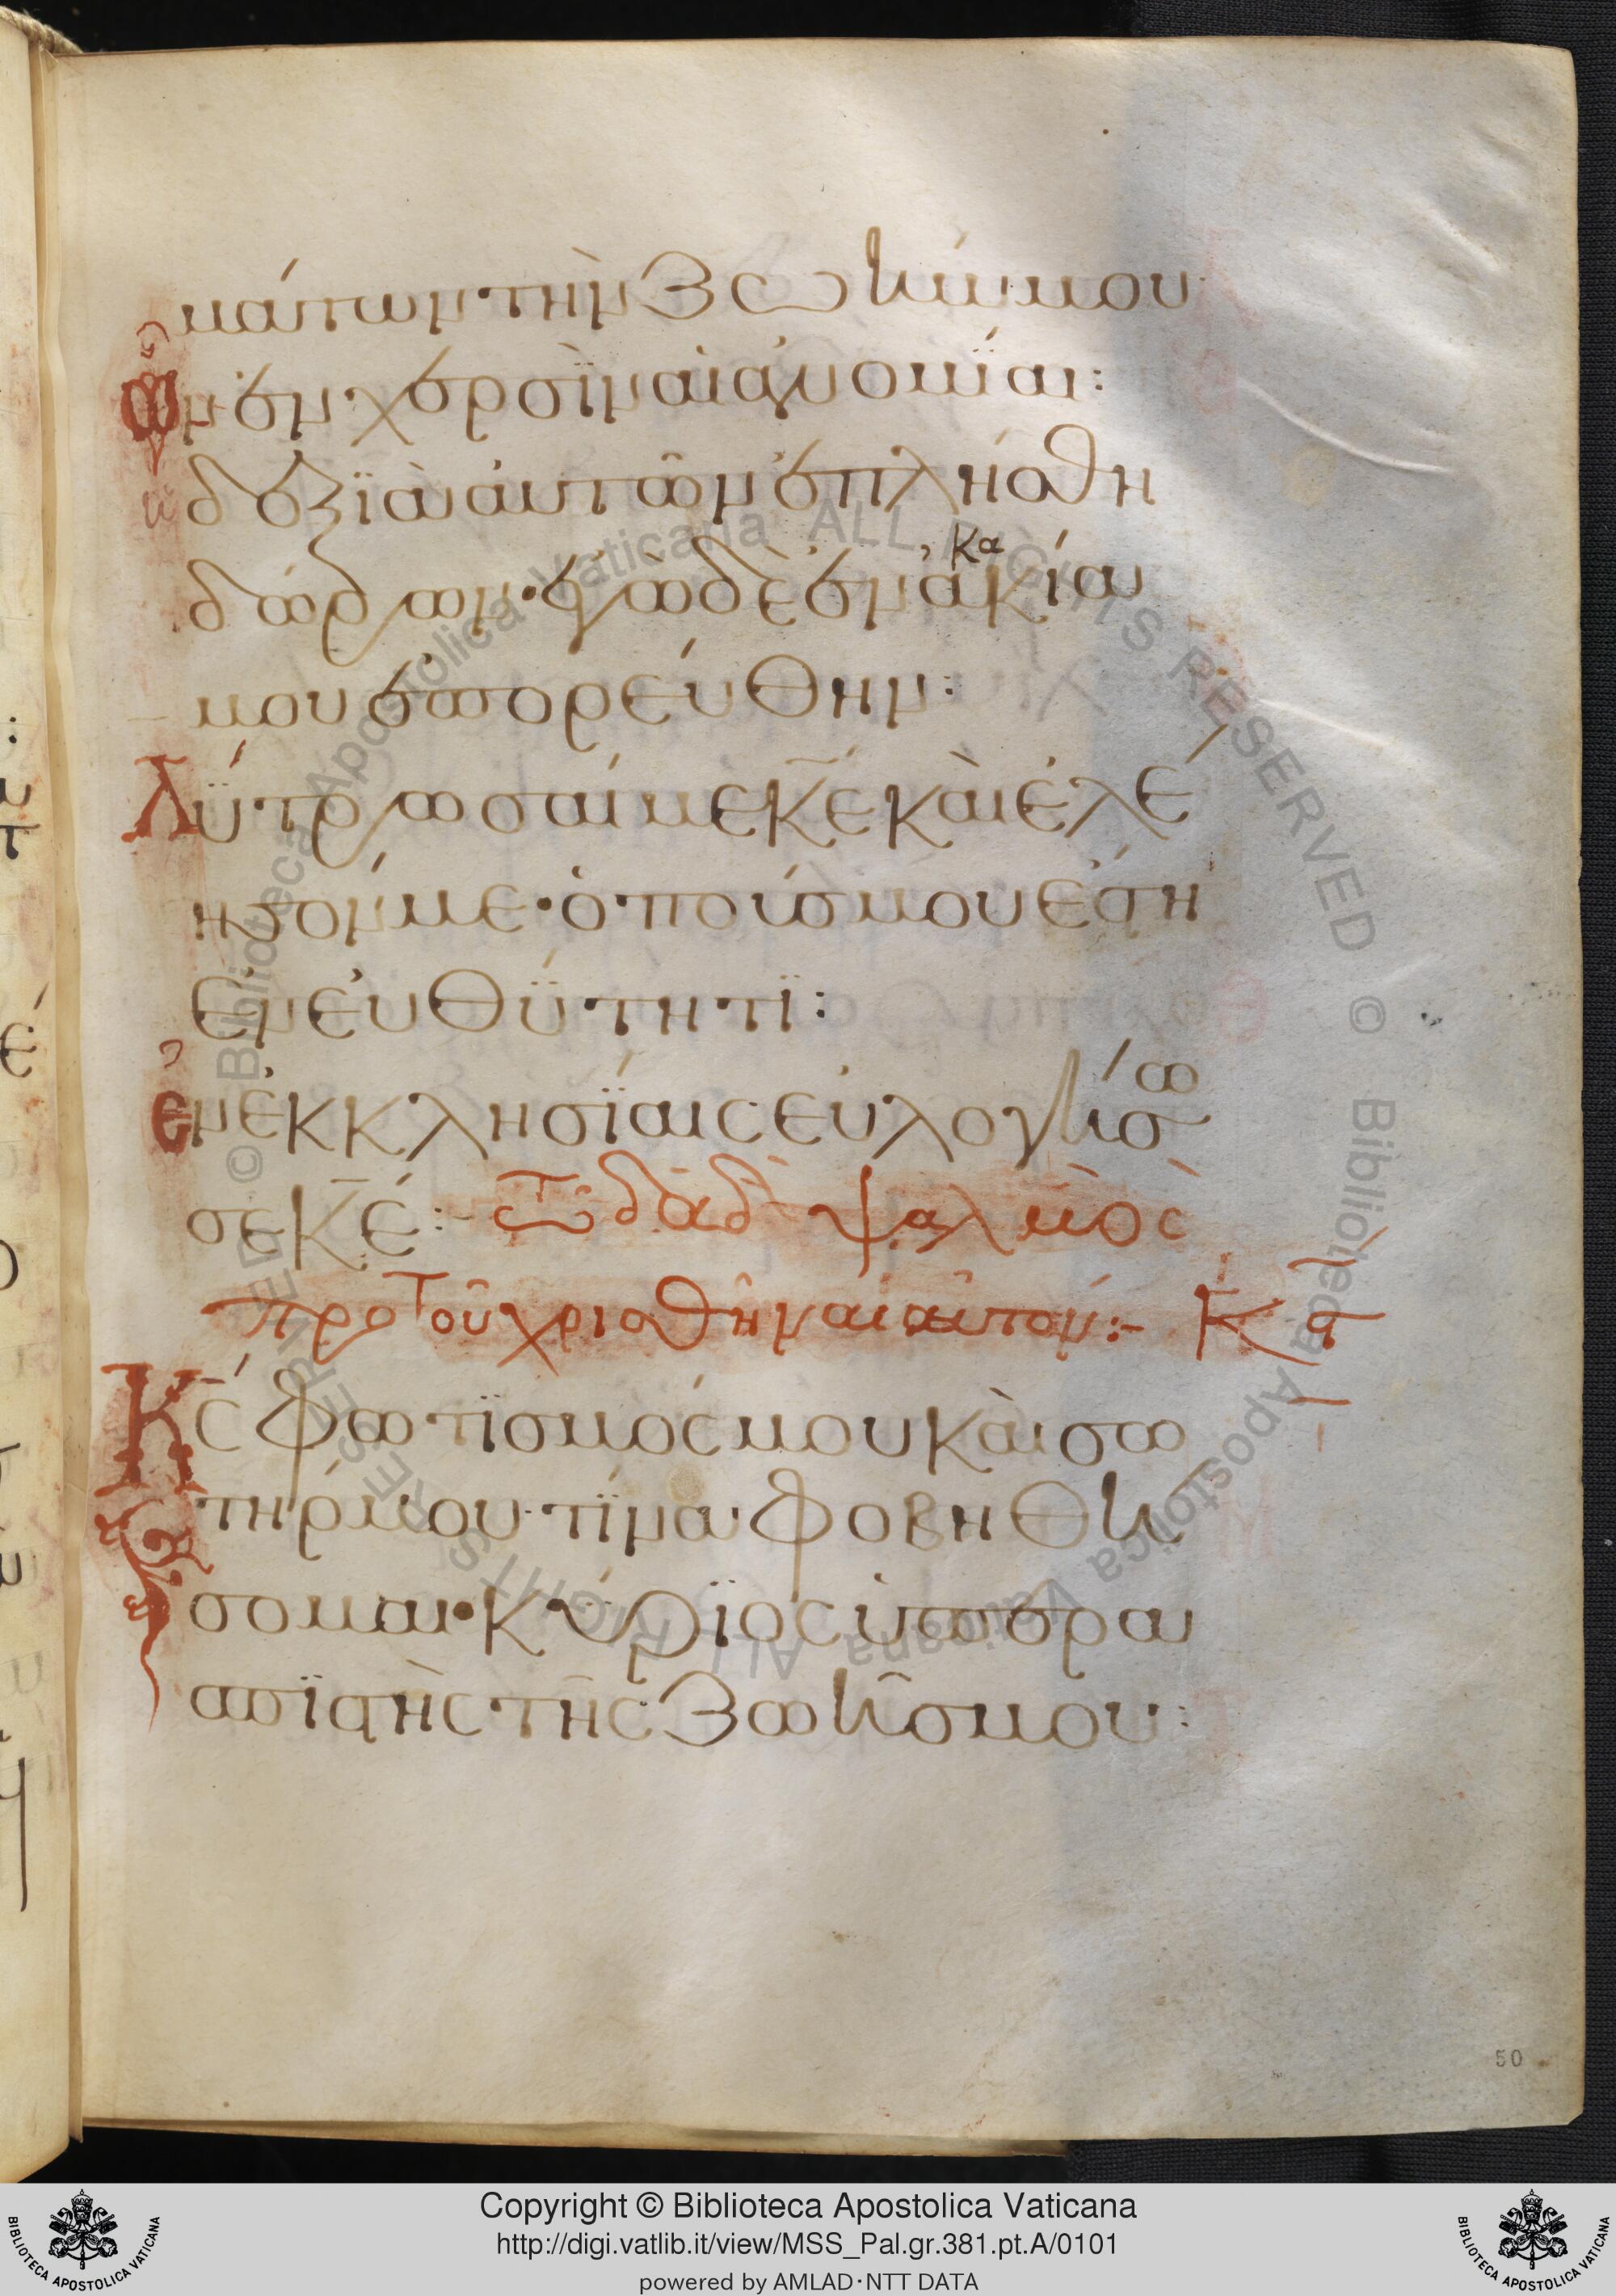 μάτων τὴν ζωήν μου·
ὧν ἐν χερσὶν αἱ ἀνομίαι:
ἡ δεξιὰ αὐτῶν ἐπλήσθη
δώρων· ἐγὼ δὲ ἐν ἀκακία
μου ἐπορεύθην:
Λύτρωσαί με κ̅ε̅ καὶ ἐλέ
ησόν με· ὁ ποῦς μου ἔστη
ἐν εὐθύτητι:
ἐν ἐκκλησίαις εὐλογήσω
σε κ̅ε̅:- Τῶ δαδ ψαλμὸς
προτοῦ χρισθῆναι αὐτόν:- κϛ
Κ̅ς̅ φωτισμός μου καὶ σω
τήρ μου· τίνα φοβηθή
σομαι· Κύριος ὑπερα
σπιστὴς τῆς ζωῆς μου:
Copyright © Biblioteca Apostolica Vaticana
http://digi.vatlib.it/view/MSS_Pal.gr.381.pt.A/0101
powered by AMLAD·NTT DATA
BIBLIOTECA APOSTOLICA VATICANA
BIBLIOTECA APOSTOLICA VATICANA
50
© Biblioteca Apostolica Vaticana ALL RIGHTS RESERVED © Biblioteca Apostolica Vaticana ALL RIGHTS RESERVED